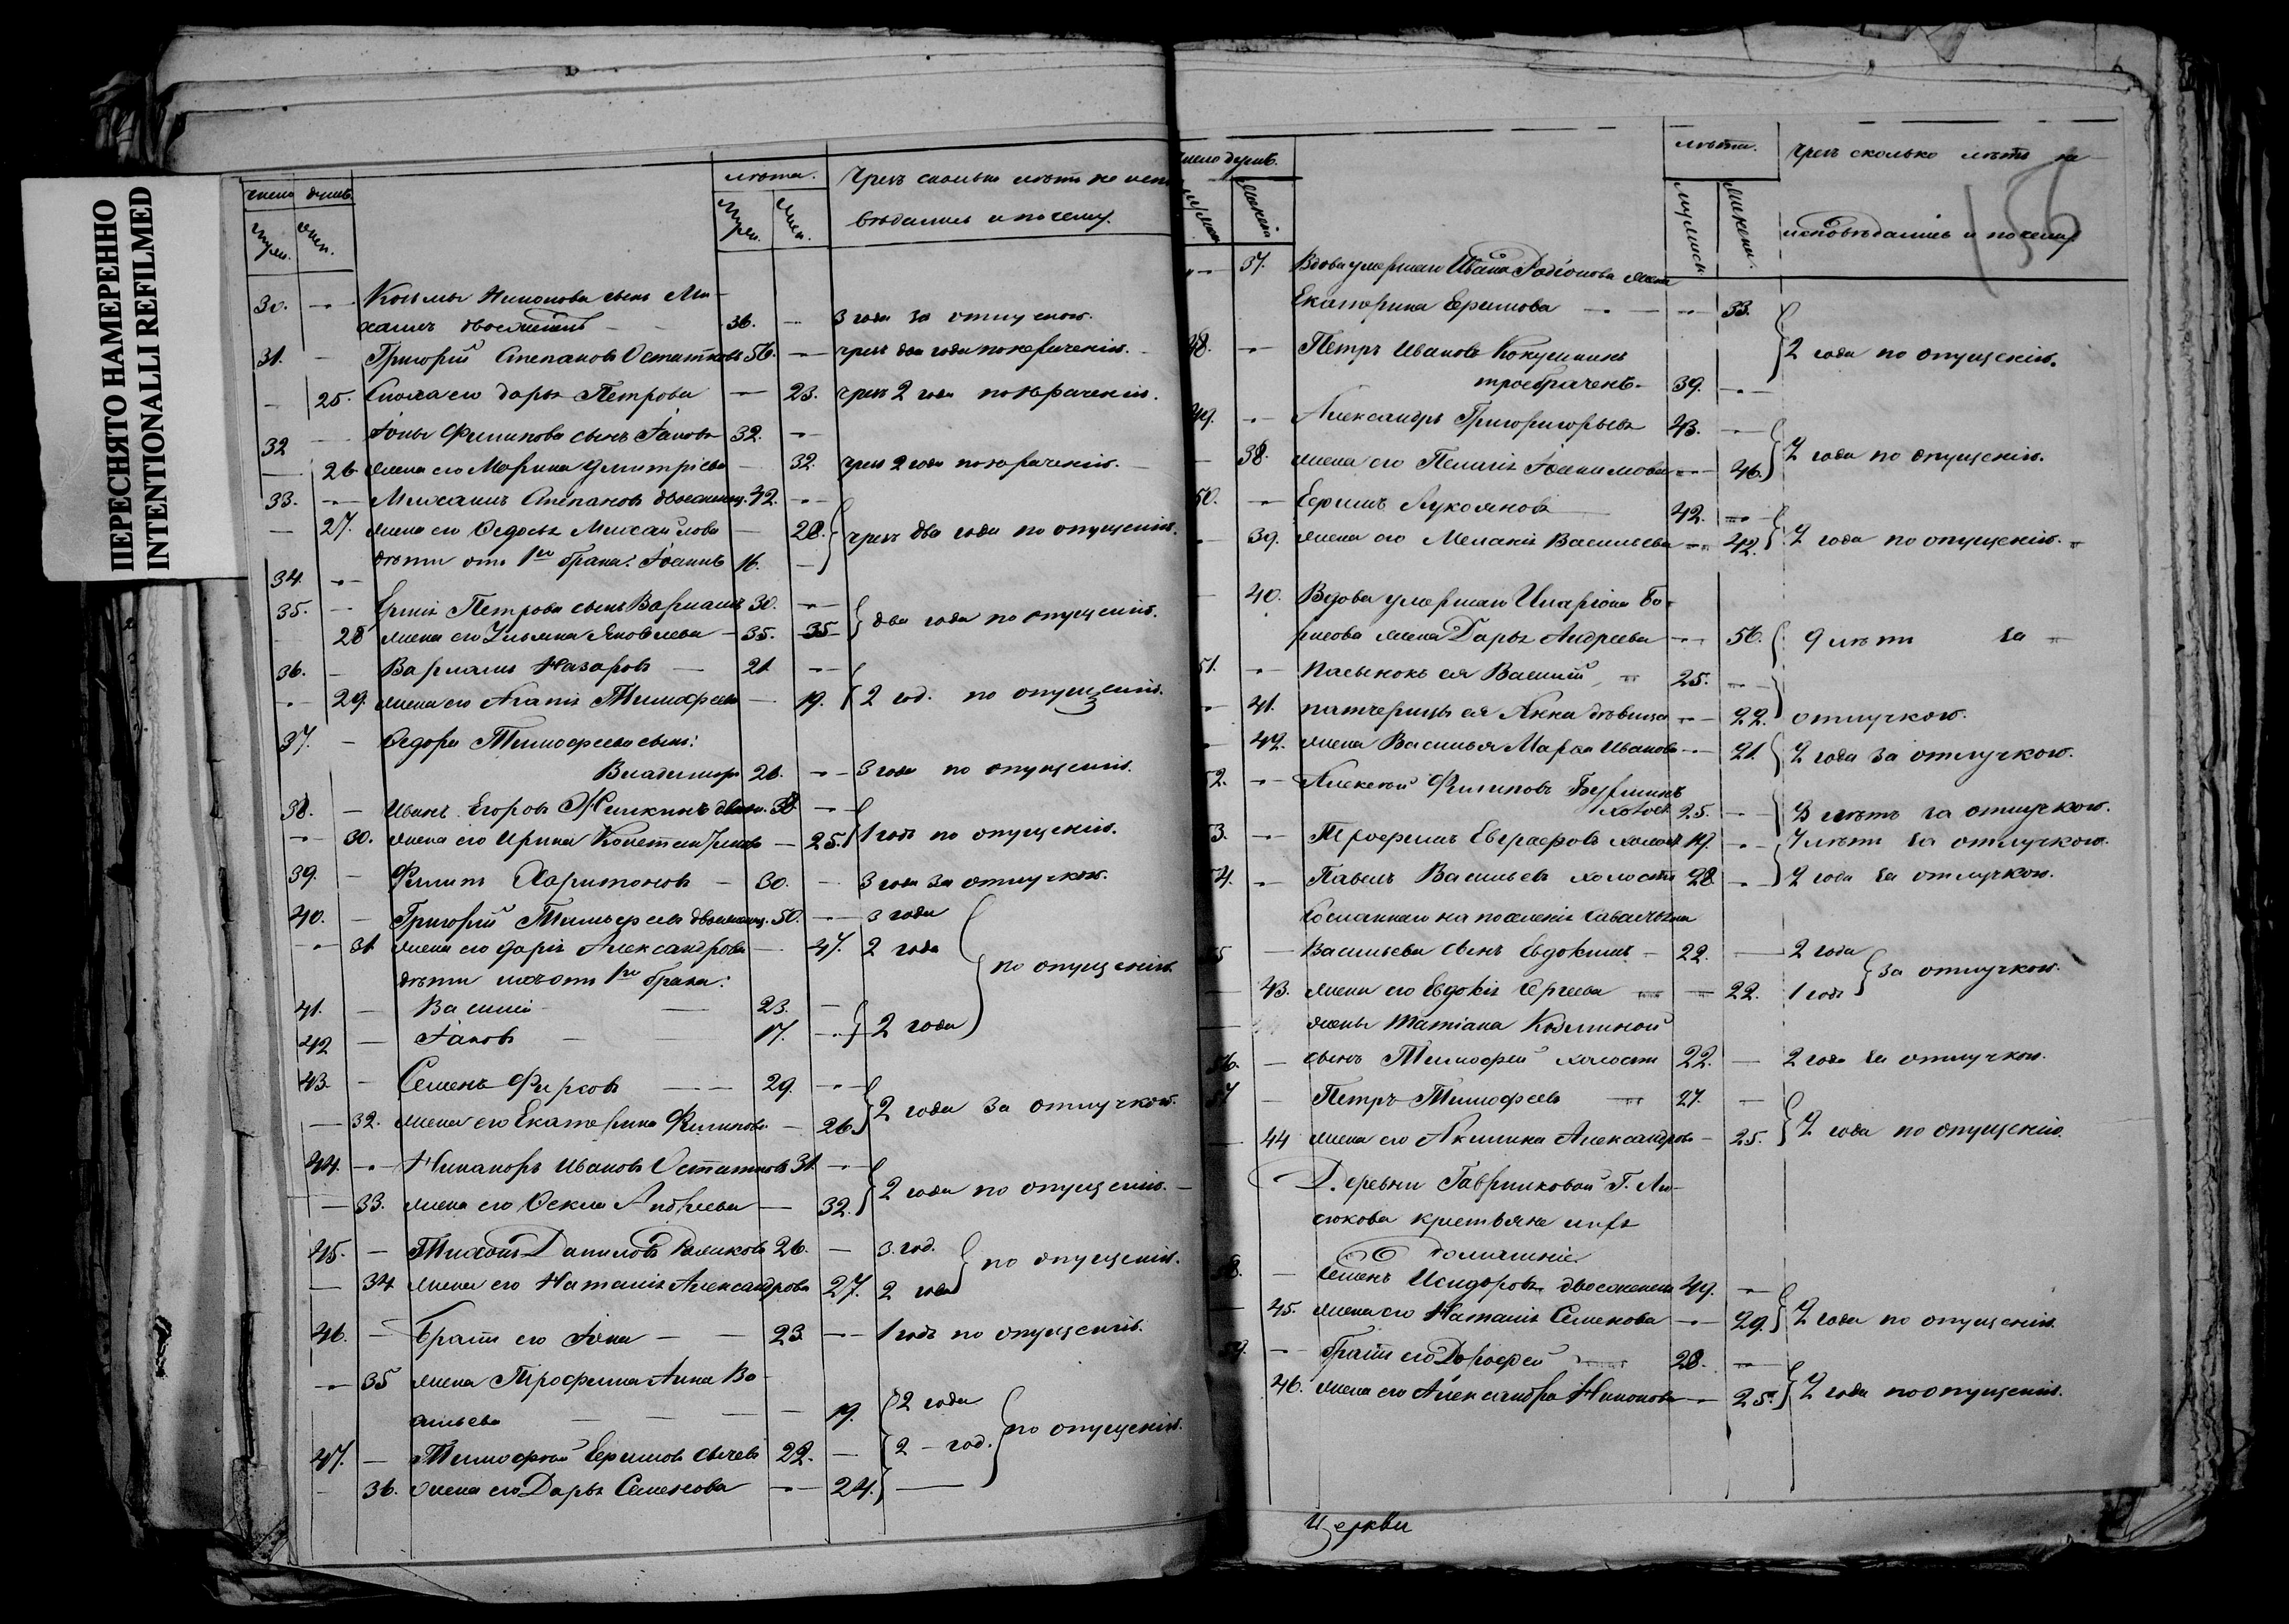 ПЕРЕСНЯТО НАМЕРЕННО
INTENTIONALLI REFILMED
число душъ.
лѣта.
Чрезъ сколько лѣтъ не испо
муж.
жен.
муж.
жен.
вѣдались и почему.
30. Козьмы Никонова сынъ Ми-
хаилъ двоеженецъ 36. 3 года за отлучкою.
31. Григорій Степановъ Остатковъ 56. чрезъ два года по нераченію.
25. Сноха его Дарья Петрова 23. чрезъ 2 года по нераченію.
32 Іоны Филипова сынъ Іаковъ 32.
26 жена его Марина Дмитріева 32. чрезъ 2 года по нераченію.
33. Михаилъ Степановъ двоеженец. 42.
27. жена его Ѳедосья Михайлова 28. чрезъ два года по опущенію.
34. дѣти отъ 1го брака: Іоаннъ 16.
35. Петрова сынъ Варламъ 30. два года по опущенію.
28 жена его Ульяна Яковлева 35. 35
36. Варламъ Назаровъ 21
29. жена его Агапія Тимофеева 19. 2 год. по опущенію.
37. Ѳедора Тимофеева сынъ:
Владимиръ 26. 3 года по опущенію.
38. Иванъ Егоровъ 38
30. жена его Ирина Констант 25. 1 годъ по опущенію.
39. Филипъ Харитоновъ 30. 3 года за отлучкою.
40. Григорій Тимофеевъ двоеженец. 50. 3 года
31 жена его Дарія Александрова 47. 2 года
по опущенію
дѣти ихъ отъ 1го брака:
41. Василій 23.
42 Іаковъ 17. 2 года
43. Семенъ Фирсовъ 29.
32. жена его Екатерина Филипова 26. 2 года за отлучкою.
44. Никаноръ Ивановъ Остатковъ 31.
33. жена его Ѳекла Андреева 32. 2 года по опущенію.
45. Тихонъ Даниловъ 26. 3 год.
по опущенію.
34 жена его Наталія Александрова 27. 2 года
46. Братъ его Іона 23. 1 годъ по опущенію.
35 жена Трофима Анна Ва-
сильева 19. 2 года
по опущенію.
47. Тимофей Ефимовъ Сычевъ 22. 2 год.
36. жена его Дарья Семенова 24.
число душъ.
лѣта.
Чрезъ сколько лѣтъ не
муж.
женск.
мужеск.
женск.
исповѣдались и почему
156
37. Вдова умершаго Ивана Родіонова жена
Екатерина Ефимова 33.
2 года по опущенію.
48. Петръ Ивановъ Кокушкинъ
троебраченъ 39.
49. Александръ Григорьевъ 43.
38. жена его Пелагія Іоакимова 46. 2 года по опущенію.
50. Ефимъ Лукояновъ 42.
39. жена его Меланія Васильева 42. 2 года по опущенію.
40. Вдова умершаго Иларіона Бо-
рисова жена Дарья Андреева 56. 9 лѣтъ за
51. пасынокъ ея Василій 25.
41. патчерица ея Анна дѣвица 22. отлучкою.
42. жена Василья Марья Иванова 21. 2 года за отлучкою.
52. Алексей Филиповъ
холост 25. 3 лѣтъ за отлучкою.
53. Трофимъ Евграфовъ холост 19. 7 лѣтъ за отлучкою.
54. Павелъ Васильевъ холостъ 28. 2 года за отлучкою.
Сосланнаго на поселеніе
55 Васильева сынъ Евдокимъ 22. 2 года
за отлучкою.
43. жена его Евдокія Сергеева 22. 1 годъ
жены Татіана Козминой
56. сынъ Тимофей холостъ 22. 2 года за отлучкою.
57 Петръ Тимофеевъ 27.
44 жена его Акилина Александрова 25. 2 года по опущенію.
Деревни Гавриковой Г. Ли-
сюкова крестьяне ихъ
домашніе.
58. Семенъ Исидоровъ двоеженецъ 49.
45. жена его Наталія Семенова 29. 2 года по опущенію.
59. братъ его Дорофей 28.
46. жена его Александра Никонова 25. 2 года по опущенію.
Церкви